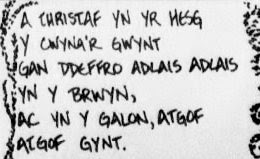 A THRISTAF YN YR HESG
Y CWYNA'R GWYNT
GAN DDEFFRO ADLAIS ADLAIS
YN Y BRWYN,
AC YN Y GALON, ATGOF
ATGOF GYNT.